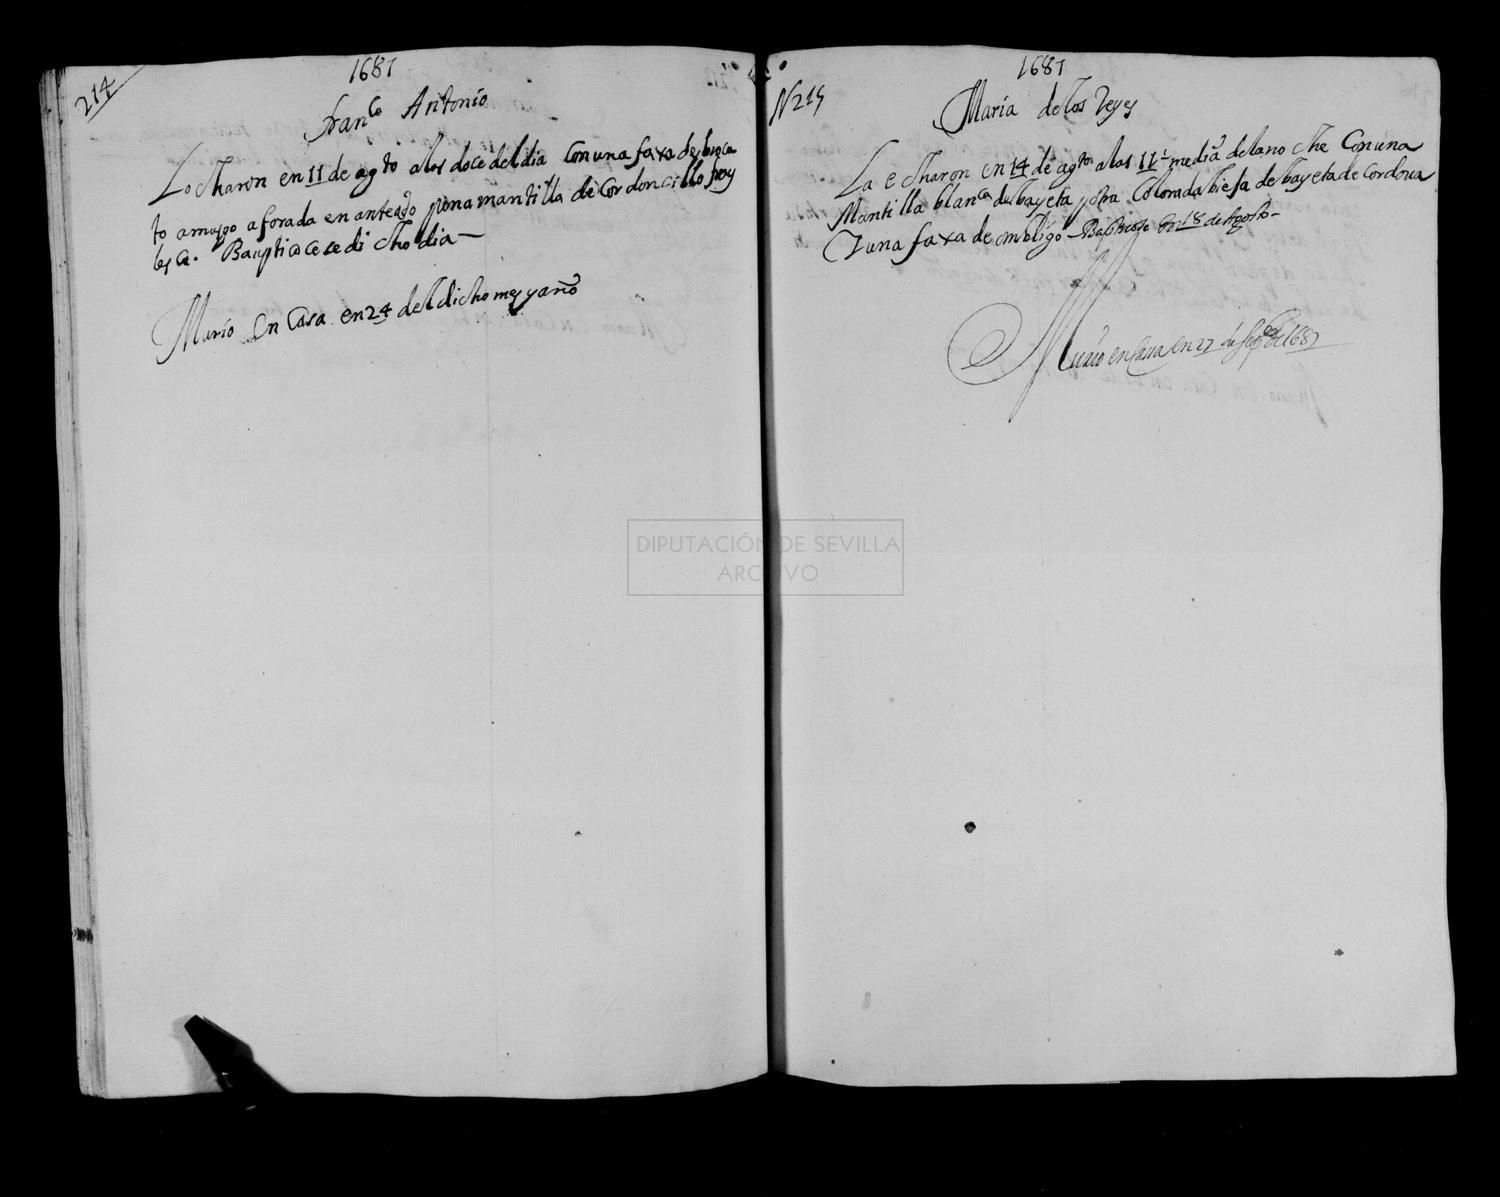 214
1687
Franco Antonio
Lo echaron en 11 de agto a los doce del dia Con una faxa de broca
to amusgo aforada en anteado y una mantilla de Cordoncillo
Bauptiçose e dicho dia
Murio En Casa en 24 del dicho mes y año
N 215
1687
Maria de los Reyes
La echaron en 14 de agto a las 11 i media de la noche Con una
Mantilla blanca de bayeta y otra Colorada biexa de bayeta de Cordoua
Y una faxa de ombligo Baptizose En 18 de Agosto
Murio en Cassa en 27 de Sepre de 1687
DIPUTACIÓN DE SEVILLA
ARCHIVO